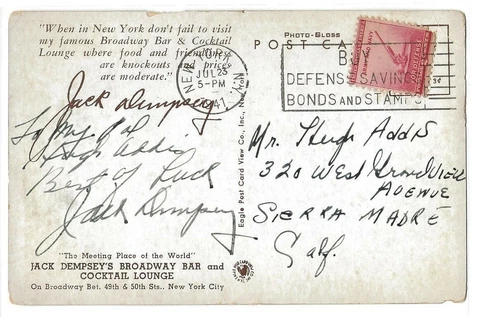 "When in New York don't fail to visit
my famous Broadway Bar & Cocktail
Lounge where food and friendliness
are knockouts and prices
are moderate."
Jack Dempsey
To My Pal
Hugh Addis
Best of Luck
Jack Dempsey
"The Meeting Place of the World"
JACK DEMPSEY'S BROADWAY BAR and
COCKTAIL LOUNGE
On Broadway Bet. 49th & 50th Sts., New York City
Eagle Post Card View Co., Inc., New York
PHOTO-GLOSS
POST CA
NEW YORK
JUL 23
5-PM
1941
N.Y.
B
DEFENSE SAVING
BONDS AND STAMPS
Mr. Hugh Addis
320 West Grandview
Avenue
Sierra Madre
Calf.